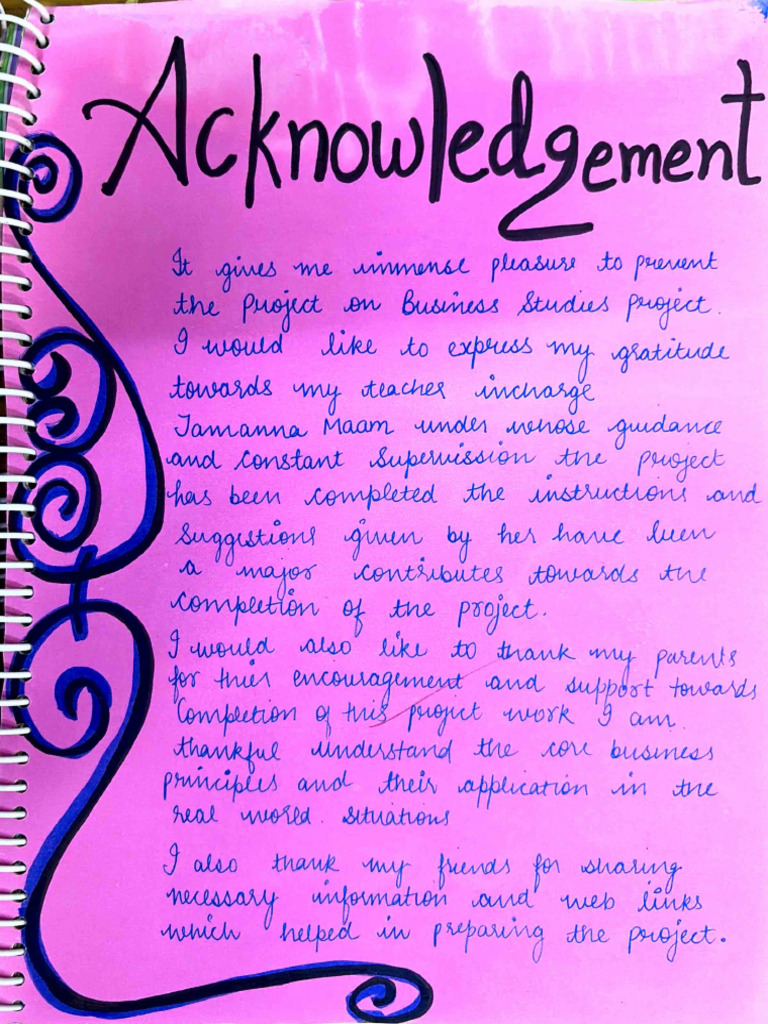 Acknowledgement
It gives me immense pleasure to prevent
the Project on Business Studies project.
I would like to express my gratitude
towards my teacher incharge
Tamanna Maam under whose guidance
and constant Supervission the project
has been completed the instructions and
suggestions given by her have been
a major contributes towards the
completion of the project.
I would also like to thank my parents
for thier encouragement and support towards
Completion of this project work I am
thankful understand the core business
principles and their application in the
real world. situations
I also thank my friends for sharing
necessary information and web links
which helped in preparing the project.